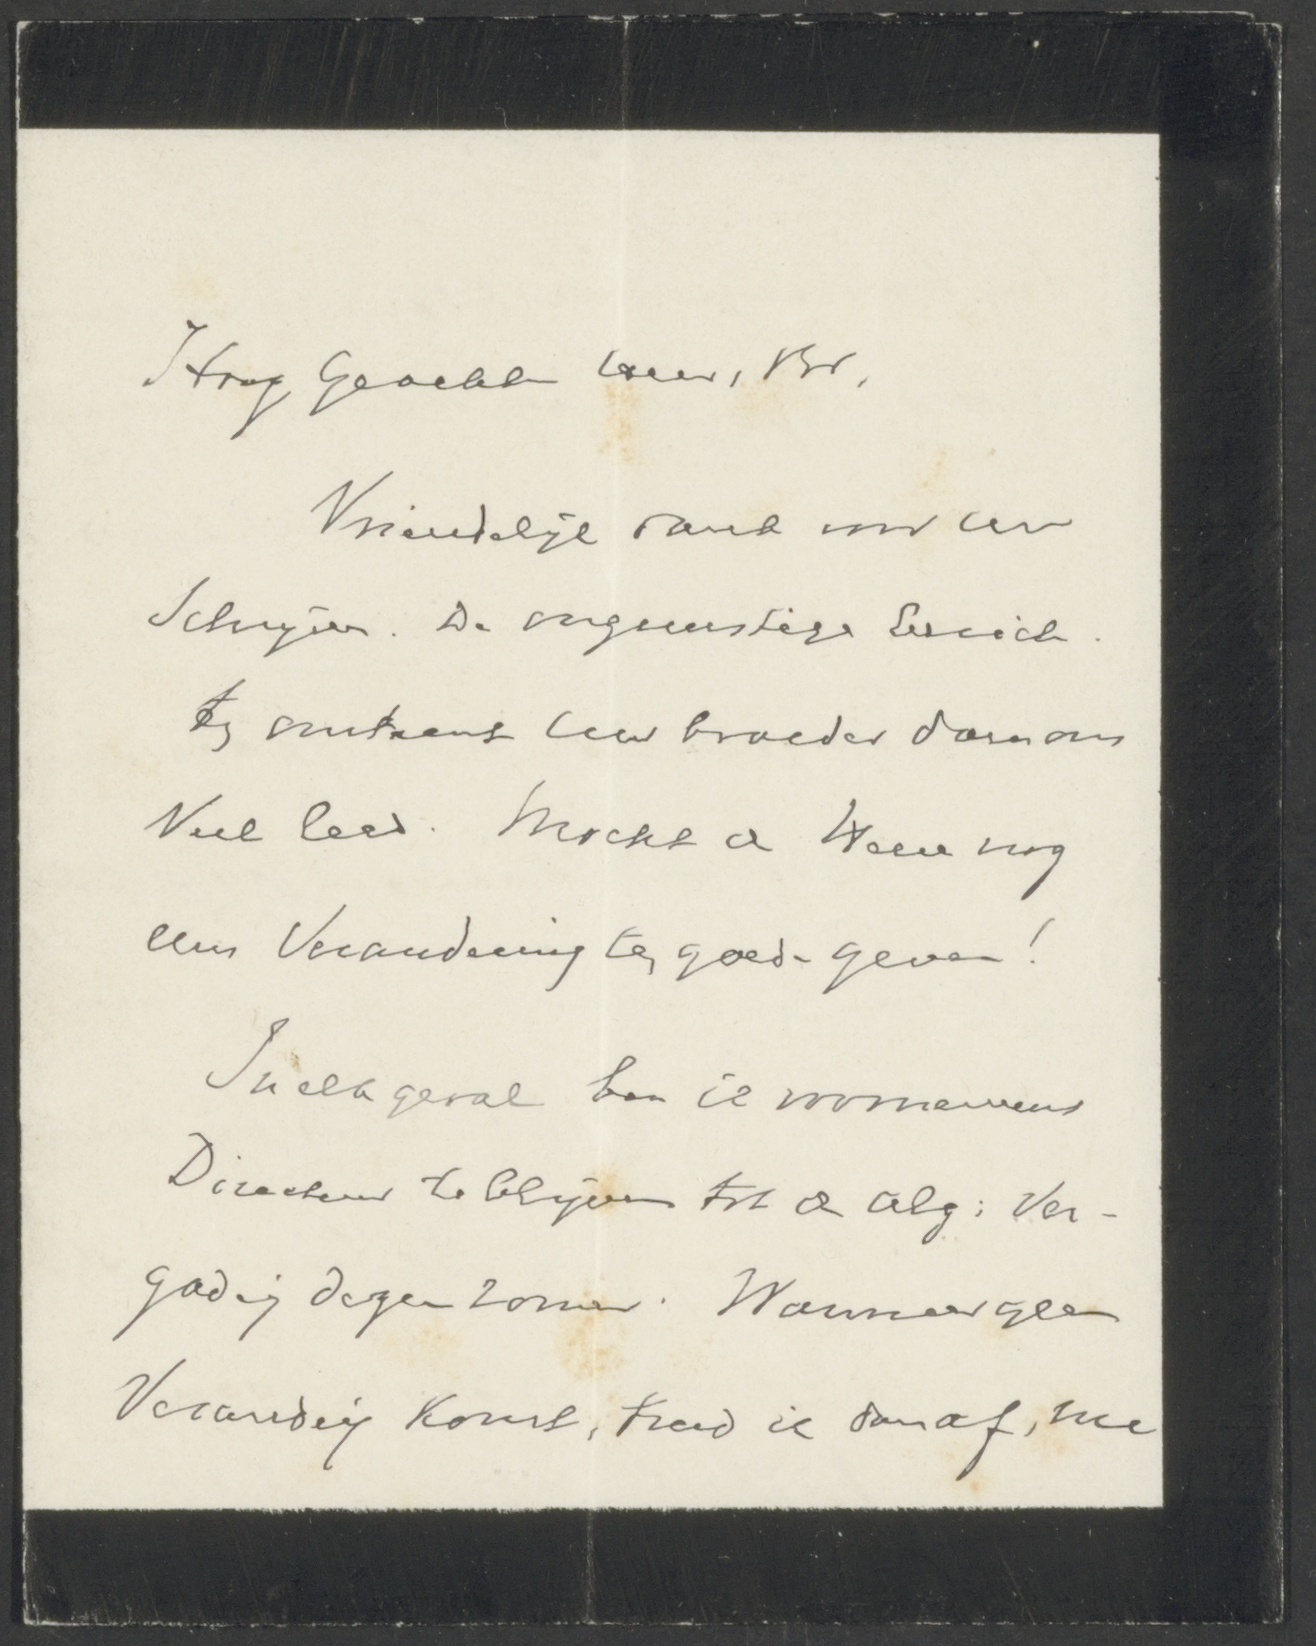 Hoog Geachte Heer, Br,
Vriendelijk dank voor Uw
Schrijven. De ongunstige berich-
ten omtrent Uw broeder doen ons
veel leed. Mocht de Heere nog
eens verandering ten goede geven!
In elk geval ben ik voornemens
Directeur te blijven tot de alg: Ver-
gad'g dezen zomer. Wanneer geen
Verand'g komt, treed ik dan af, me